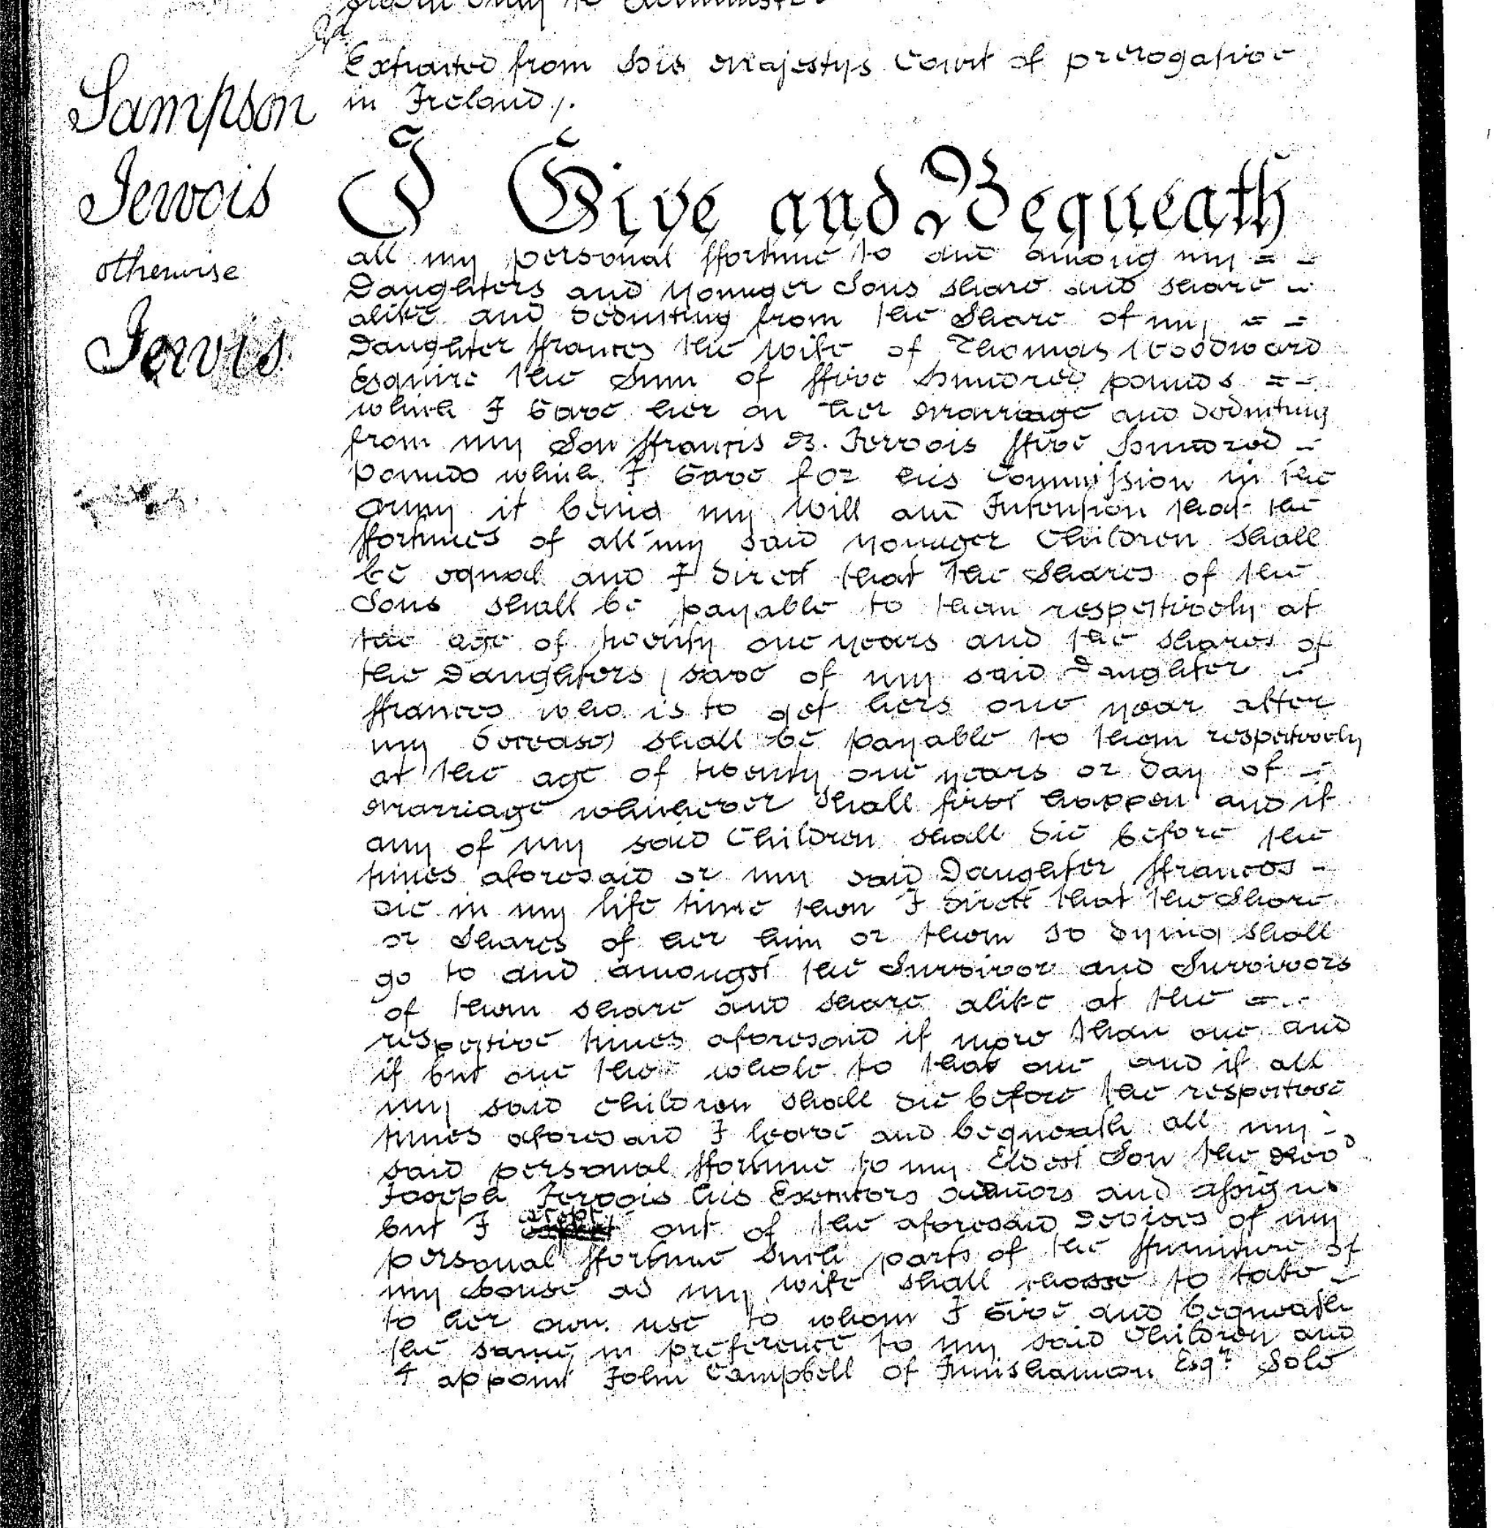 Sworn only to Administer
Extracted from his Majestys Court of prerogative
in Ireland /.
Sampson
Jervois
otherwise
Jervis
I Give and Bequeath
all my personal ffortune to and among my = =
Daughters and Younger Sons share and share =
alike and deducting from the Share of my = =
Daughter ffrances the Wife of Thomas Woodward
Esquire the Sum of ffive hundred pounds = =
which I Gave her on her Marriage and deducting
from my Son ffrancis B. Jervois ffive hundred =
pounds which I Gave for his Commission in the
army it being my Will and Intention that the
ffortunes of all my said younger Children shall
be equal and I direct that the Shares of the
Sons shall be payable to them respectively at
the age of twenty one years and the shares of
the Daughters (save of my said Daughter =
ffrances who is to get hers one year after
my decease) shall be payable to them respectively
at the age of twenty one years or day of =
Marriage whichever shall first happen and if
any of my said Children shall die before the
times aforesaid or my said Daughter ffrances =
die in my life time then I direct that the Share
or Shares of her him or them so dying shall
go to and amongst the Survivor and Survivors
of them share and share alike at the = =
respective times aforesaid if more than one and
if but one the whole to that one and if all
my said Children shall die before the respective
times aforesaid I leave and bequeath all my =
said personal ffortune to my Eldest Son the Revd
Joseph Jervois his Executors admors and assigns
but I except out of the aforesaid Devises of my
personal ffortune such parts of the ffurniture of
my house as my wife shall choose to take =
to her own use to whom I Give and bequeath
the same in preference to my said Children and
I appoint John Campbell of Innishannon Esqr. Sole